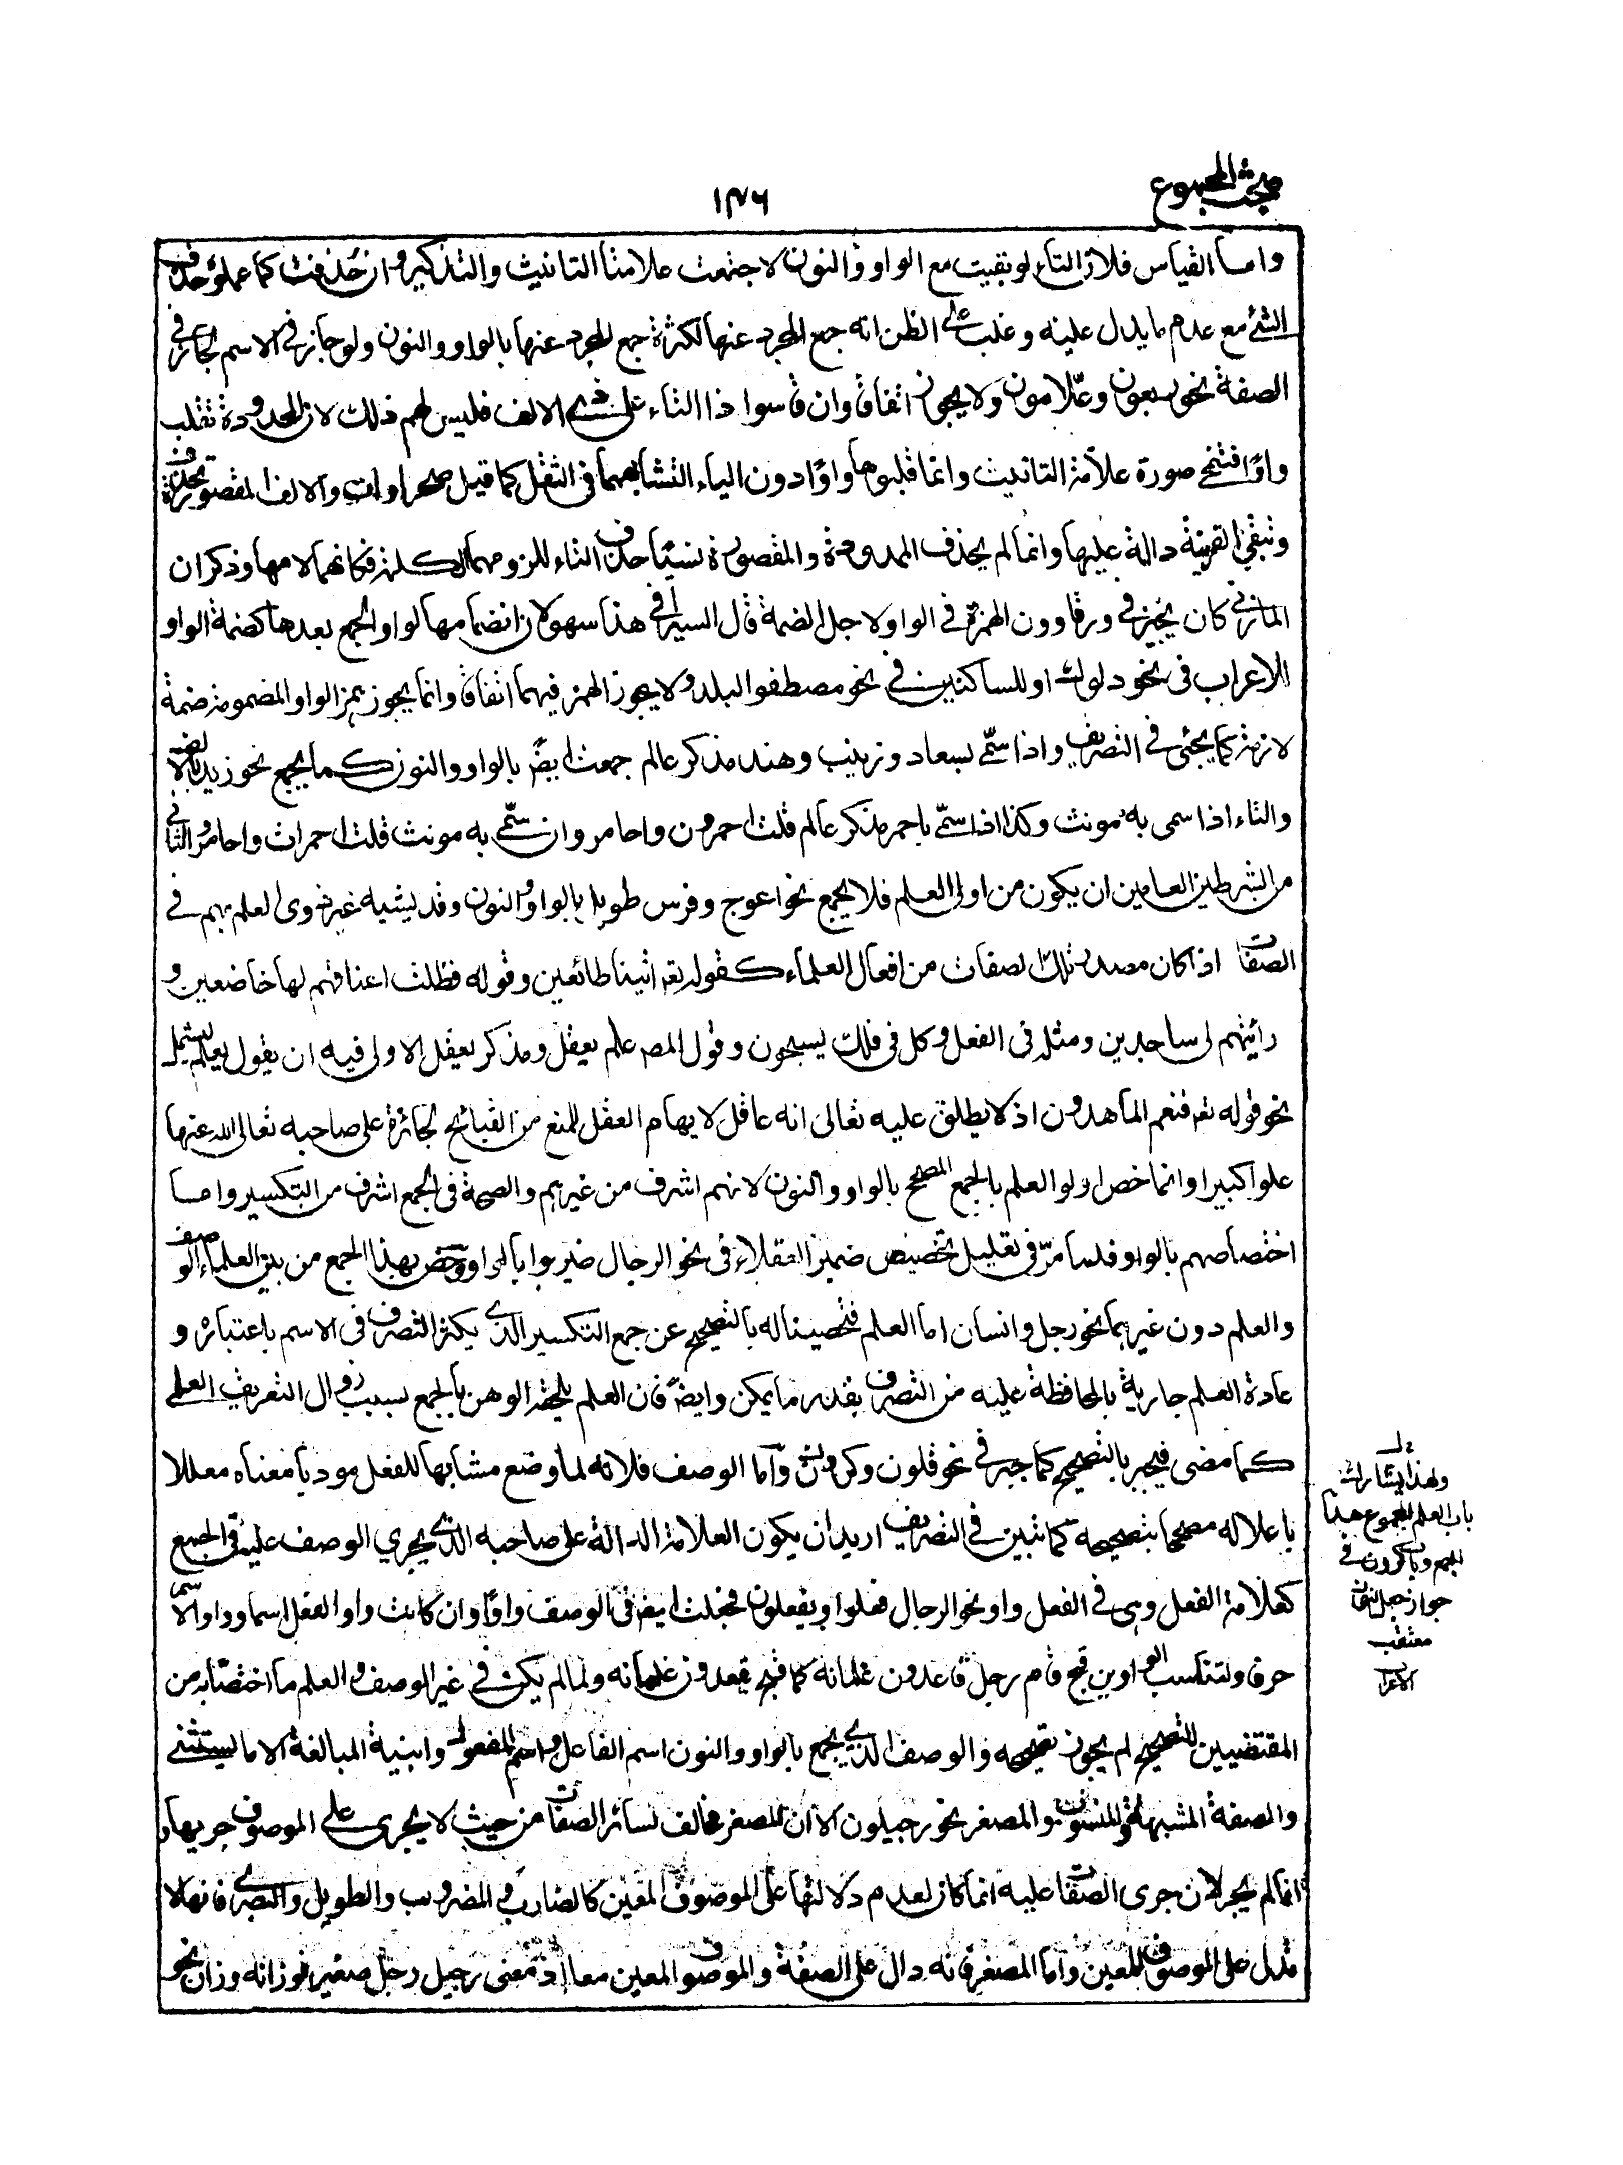 مبحث المجموع
١٣٦
واما القياس فلان التاء لو بقيت مع الواو والنون لاجتمعت علامتا التانيث والتذكير وان حذفت كما عملو حذف
الشئ مع عدم ما يدل عليه وغلب على الظن انه جمع المجرد عنها لكثرة جمع المجرد عنها بالواو والنون ولو جاز فى الاسم لجاز فى
الصفة نحو ربعون وعلامون ولا يجوز اتفاقا وان قاسوا ذا التاء على ذى الالف فليس لهم ذلك لان الممدودة تقلب
واوا فتمحى صورة علامة التانيث وانما قلبوها واوا دون الياء لتشابههما فى الثقل كما قيل صحراوات والالف المقصورة تحذف
وتبقى الفتحة دالة عليها وانما لم يحذف الممدودة والمقصورة نسيا حذف التاء للزومهما الكلمة فكانهما لامها وذكر ان
المازنى كان يجيز فى ورقاوون الهمزة فى الواو لاجل الضمة قال السيرافى هذا سهو لان انضمامها لواو الجمع بعدها كضمة الواو
للاعراب فى نحو دلوك او للساكنين فى نحو مصطفو البلد ولا يجوز الهمز فيهما اتفاقا وانما يجوز همز الواو المضمومة ضمة
لازمة كما يجئ فى التصريف واذا سمى بسعاد وزينب وهند مذكر عالم جمعت ايضً بالواو والنون كما يجمع نحو زيد بالالف
والتاء اذا سمى به مونث وكذا اذا سمى باحمر مذكر عالم قلت احمرون واحامر وان سمى به مونث قلت احمرات واحامر والثانى
من الشرطين العامين ان يكون من اولى العلم فلا يجمع نحو اعوج وفرس طويل بالواو والنون وقد يشبه غير ذوى العلم بهم فى
الصفات اذا كان مصدر تلك الصفات من افعال العلماء كقوله تع اتينا طائعين وقوله فظلت اعناقهم لها خاضعين و
رأيتهم لى ساجدين ومثله فى الفعل وكل فى فلك يسبحون وقول المصـ علم يعقل ومذكر يعقل الاولى فيه ان يقول يعلم ليشمل
نحو قوله تع فنعم الماهدون اذ لا يطلق عليه تعالى انه عاقل لايهام العقل للمنع من القبائح الجائزة على صاحبه تعالى الله عنها
علوا كبيرا وانما خص اولو العلم بالجمع المصحح بالواو والنون لانهم اشرف من غيرهم والصحة فى الجمع اشرف من التكسير واما
اختصاصهم بالواو فلما مرّ فى تعليل تخصيص ضمير العقلاء فى نحو الرجال ضربوا بالواو وخص بهذا الجمع من بين العلماء الوصف
والعلم دون غيرهما نحو رجل وانسان اما العلم فتحصيناله بالتصحيح عن جمع التكسير الذى يكثر التصرف فى الاسم باعتباره و
عادة العلم جارية بالمحافظة عليه من التصرف بقدر ما يمكن وايضً فان العلم يلحقه الوهن بالجمع بسبب زوال التعريف العلمى
كما مضى فيجبر بالتصحيح كما جبر فى نحو قلون وكرون وأما الوصف فلانه لما وضع مشابها للفعل موديا معناه معللا
باعلاله مصححا بتصحيحه كما تبين فى التصريف اريد ان يكون العلامة الدالة على صاحبه الذى يجرى الوصف عليه فى الجمع
كعلامة الفعل وهى فى الفعل واو نحو الرجال فعلوا ويفعلون فجعلت ايضً فى الوصف واوًا وان كانت واو الفعل اسما وواو الاسم
حرفا ولتناسب الواوين قبح قام رجل قاعدون غلمانه كما قبح يقعدون غلمانه ولما لم يكن فى غير الوصف والعلم ما اختصا به من
المقتضيين للتصحيح لم يجوز تصحيحه والوصف الذى يجمع بالواو والنون اسم الفاعل واسم المفعول وابنية المبالغة الا ما يستثنى
والصفة المشبهة والمنسوب والمصغر نحو رجيلون الا ان المصغر مخالف لسائر الصفات من حيث لا يجرى على الموصوف جريها و
انما لم يجر لان جرى الصفات عليه انما كان لعدم دلالتها على الموصوف المعين كالضارب والمضروب والطويل والبصرى فانها لا
تدل على الموصوف المعين واما المصغر فانه دال على الصفة والموصوف المعين معا اذ معنى رجيل رجل صغير فوزانه وزان نحو
ولهذا يشارك
باب العلم المجموع هذا
الجمع وباب كرون فى
جواز جعل النون
معتقب
الاعراب